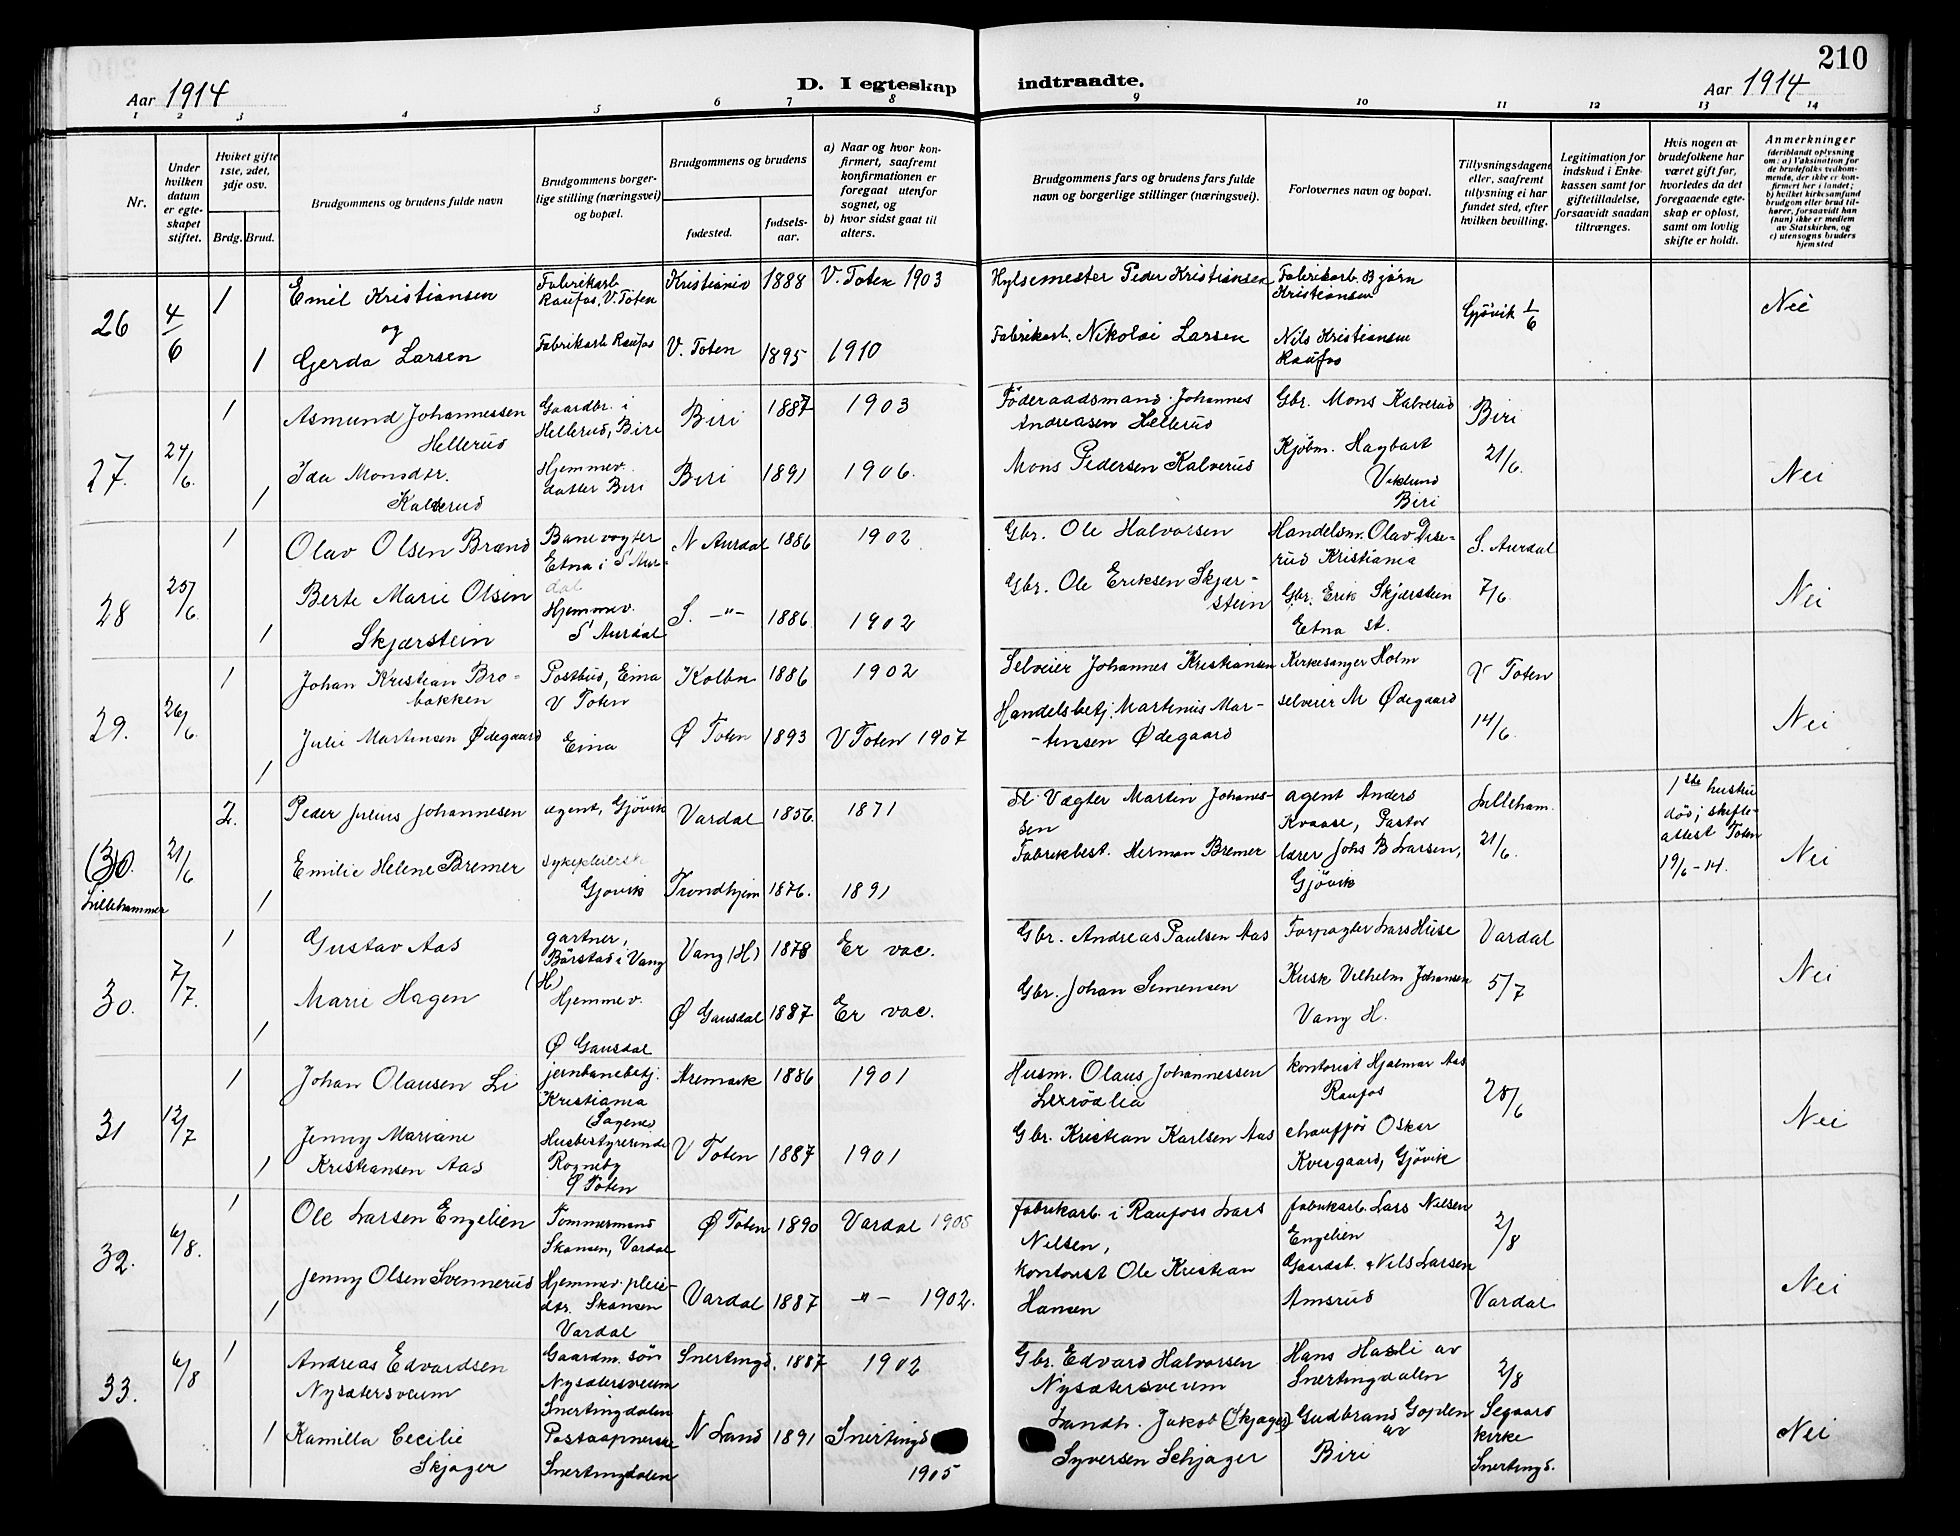 210
Aar 1914
D. I egteskap indtraadte.
Aar 1914
1 2 3 4 5 6 7 8 9 10 11 12 13 14
Nr.
Under hvilken datum er egteskapet stiftet.
Hvilket gifte 1ste, 2det, 3dje osv.
Brdg. Brud.
Brudgommens og brudens fulde navn
Brudgommens borgerlige stilling (næringsvei) og bopæl.
Brudgommens og brudens
fødested.
fødselsaar.
a) Naar og hvor konfirmert, saafremt konfirmationen er foregaat utenfor sognet, og
b) hvor sidst gaat til alters.
Brudgommens fars og brudens fars fulde navn og borgerlige stillinger (næringsvei).
Forlovernes navn og bopæl.
Tillysningsdagene eller, saafremt tillysning ei har fundet sted, efter hvilken bevilling.
Legitimation for indskud i Enkekassen samt for giftetilladelse, forsaavidt saadan tiltrænges.
Hvis nogen av brudefolkene har været gift før, hvorledes da det foregaaende egteskap er opløst, samt om lovlig skifte er holdt.
Anmerkninger
(deriblandt oplysning om: a) Vaksination for de brudefolks vedkommende, der ikke er konfirmert her i landet; b) hvilket kirkesamfund brudgom eller brud tilhører, forsaavidt han (hun) ikke er medlem av Statskirken, og c) utensogns bruders hjemsted
26 4/6 1 Emil Kristiansen Fabrikarb Raufos, V. Toten Kristiania 1888 V. Toten 1903 Hylsemester Peder Kristiansen Fabrikarb. Bjørn Kristiansen Gjøvik 1/6 Nei
og
1 Gerda Larsen Fabrikarb Raufos V. Toten 1895 1910 Fabrikarb. Nikolai Larsen Nils Kristiansen Raufos
27. 24/6. 1 Asmund Johannessen Hellerud Gaardbr. i Hellerud, Biri Biri 1887 1903 Føderaadsmand Johannes Andreasen Hellerud Gbr. Mons Kalverud Biri 21/6. Nei
1 Ida Monsdtr. Kalverud Hjemmev. datter Biri Biri 1891 1906. Mons Pedersen Kalverud Kjøbm. Hagbart Viklund Biri
28 25/6. 1 Olav Olsen Brænd Banevogter Etna i S Aurdal N Aurdal 1886 1902 Gbr. Ole Halvorsen Handelsm. Olav Diserud Kristiania S. Aurdal 7/6. Nei
1 Berte Marie Olsen Skjærstein Hjemmev. S Aurdal S. -"- 1886 1902 Gbr. Ole Eriksen Skjærstein Gbr. Erik Skjærstein Etna st.
29. 26/6. 1 Johan Kristian Brobakken Postbud, Eina V Toten Kolbu 1886 1902 Selveier Johannes Kristiansen Kirkesanger Holm V Toten 14/6. Nei
1 Julie Martinsen Ødegaard Eina Ø Toten 1893 V Toten 1907 Handelsbetj. Martinius Martinsen Ødegaard selveier M Ødegaard
(30). Lillehammer 21/6 2. Peder Julius Johannesen agent, Gjøvik Vardal 1856. 1871 Vægter Martin Johannessen agent Anders Kvaase, Pastor Lilleham. 21/6. 1ste hustru død; skifteattest Toten 19/6-14. Nei
1 Emilie Helene Bremer sykepleiersk Gjøvik Trondhjem 1876. 1891 Fabrikbest. Herman Bremer lærer Johs B Larsen, Gjøvik
30. 7/7. 1 Gustav Aas gartner, Børstad i Vang (H) Vang (H) 1878 Er vac. Gbr. Andreas Paulsen Aas Forpagter Lars Huse Vardal 5/7 Nei
1 Marie Hagen Hjemmev. Ø Gausdal Ø Gausdal 1887 Er vac. Gbr. Johan Simensen Kusk Vilhelm Johansen Vang H.
31 12/7 1 Johan Olausen Li jernbanebetj. Kristiania (Sagene) Aremark 1886 1901 Husm. Olaus Johannessen kontorist Hjalmar Aas Raufos 28/6 Nei
1 Jenny Mariane Kristiansen Aas Husbestyrerinde Rogneby Ø Toten V Toten 1887 1901 Gbr. Kristian Karlsen Aas chauffør Oskar Kvesgaard, Gjøvik
32. 6/8. 1 Ole Larsen Engelien Tømmermand Skansen, Vardal Ø Toten 1890 Vardal 1905 fabrikarb. i Raufoss Lars Nilsen, fabrikarb. Lars Nilsen Engelien 2/8 Vardal Nei
1 Jenny Olsen Svennerud Hjemmev. pleiedtr. Skansen Vardal Vardal 1887 -"- 1902. kontorist Ole Kristian Hansen Gaardst. Nils Larsen Amsrud
33. 6/8 1 Andreas Edvardsen Nysætersveum Gaardm. søn Nysætersveum Snertingdalen Snertingd. 1887 1902 Gbr. Edvard Halvorsen Nysætersveum Hans Hasli av Snertingdalen 2/8 Segaard kirke Snertingd. Nei
1 Kamilla Cecilie Skjager Postaapnerske Snertingdalen N Land 1891 Snertingd 1905 Landh. Jakob (Skjager) Syversen Schjager Gudbrand Goplen av Biri